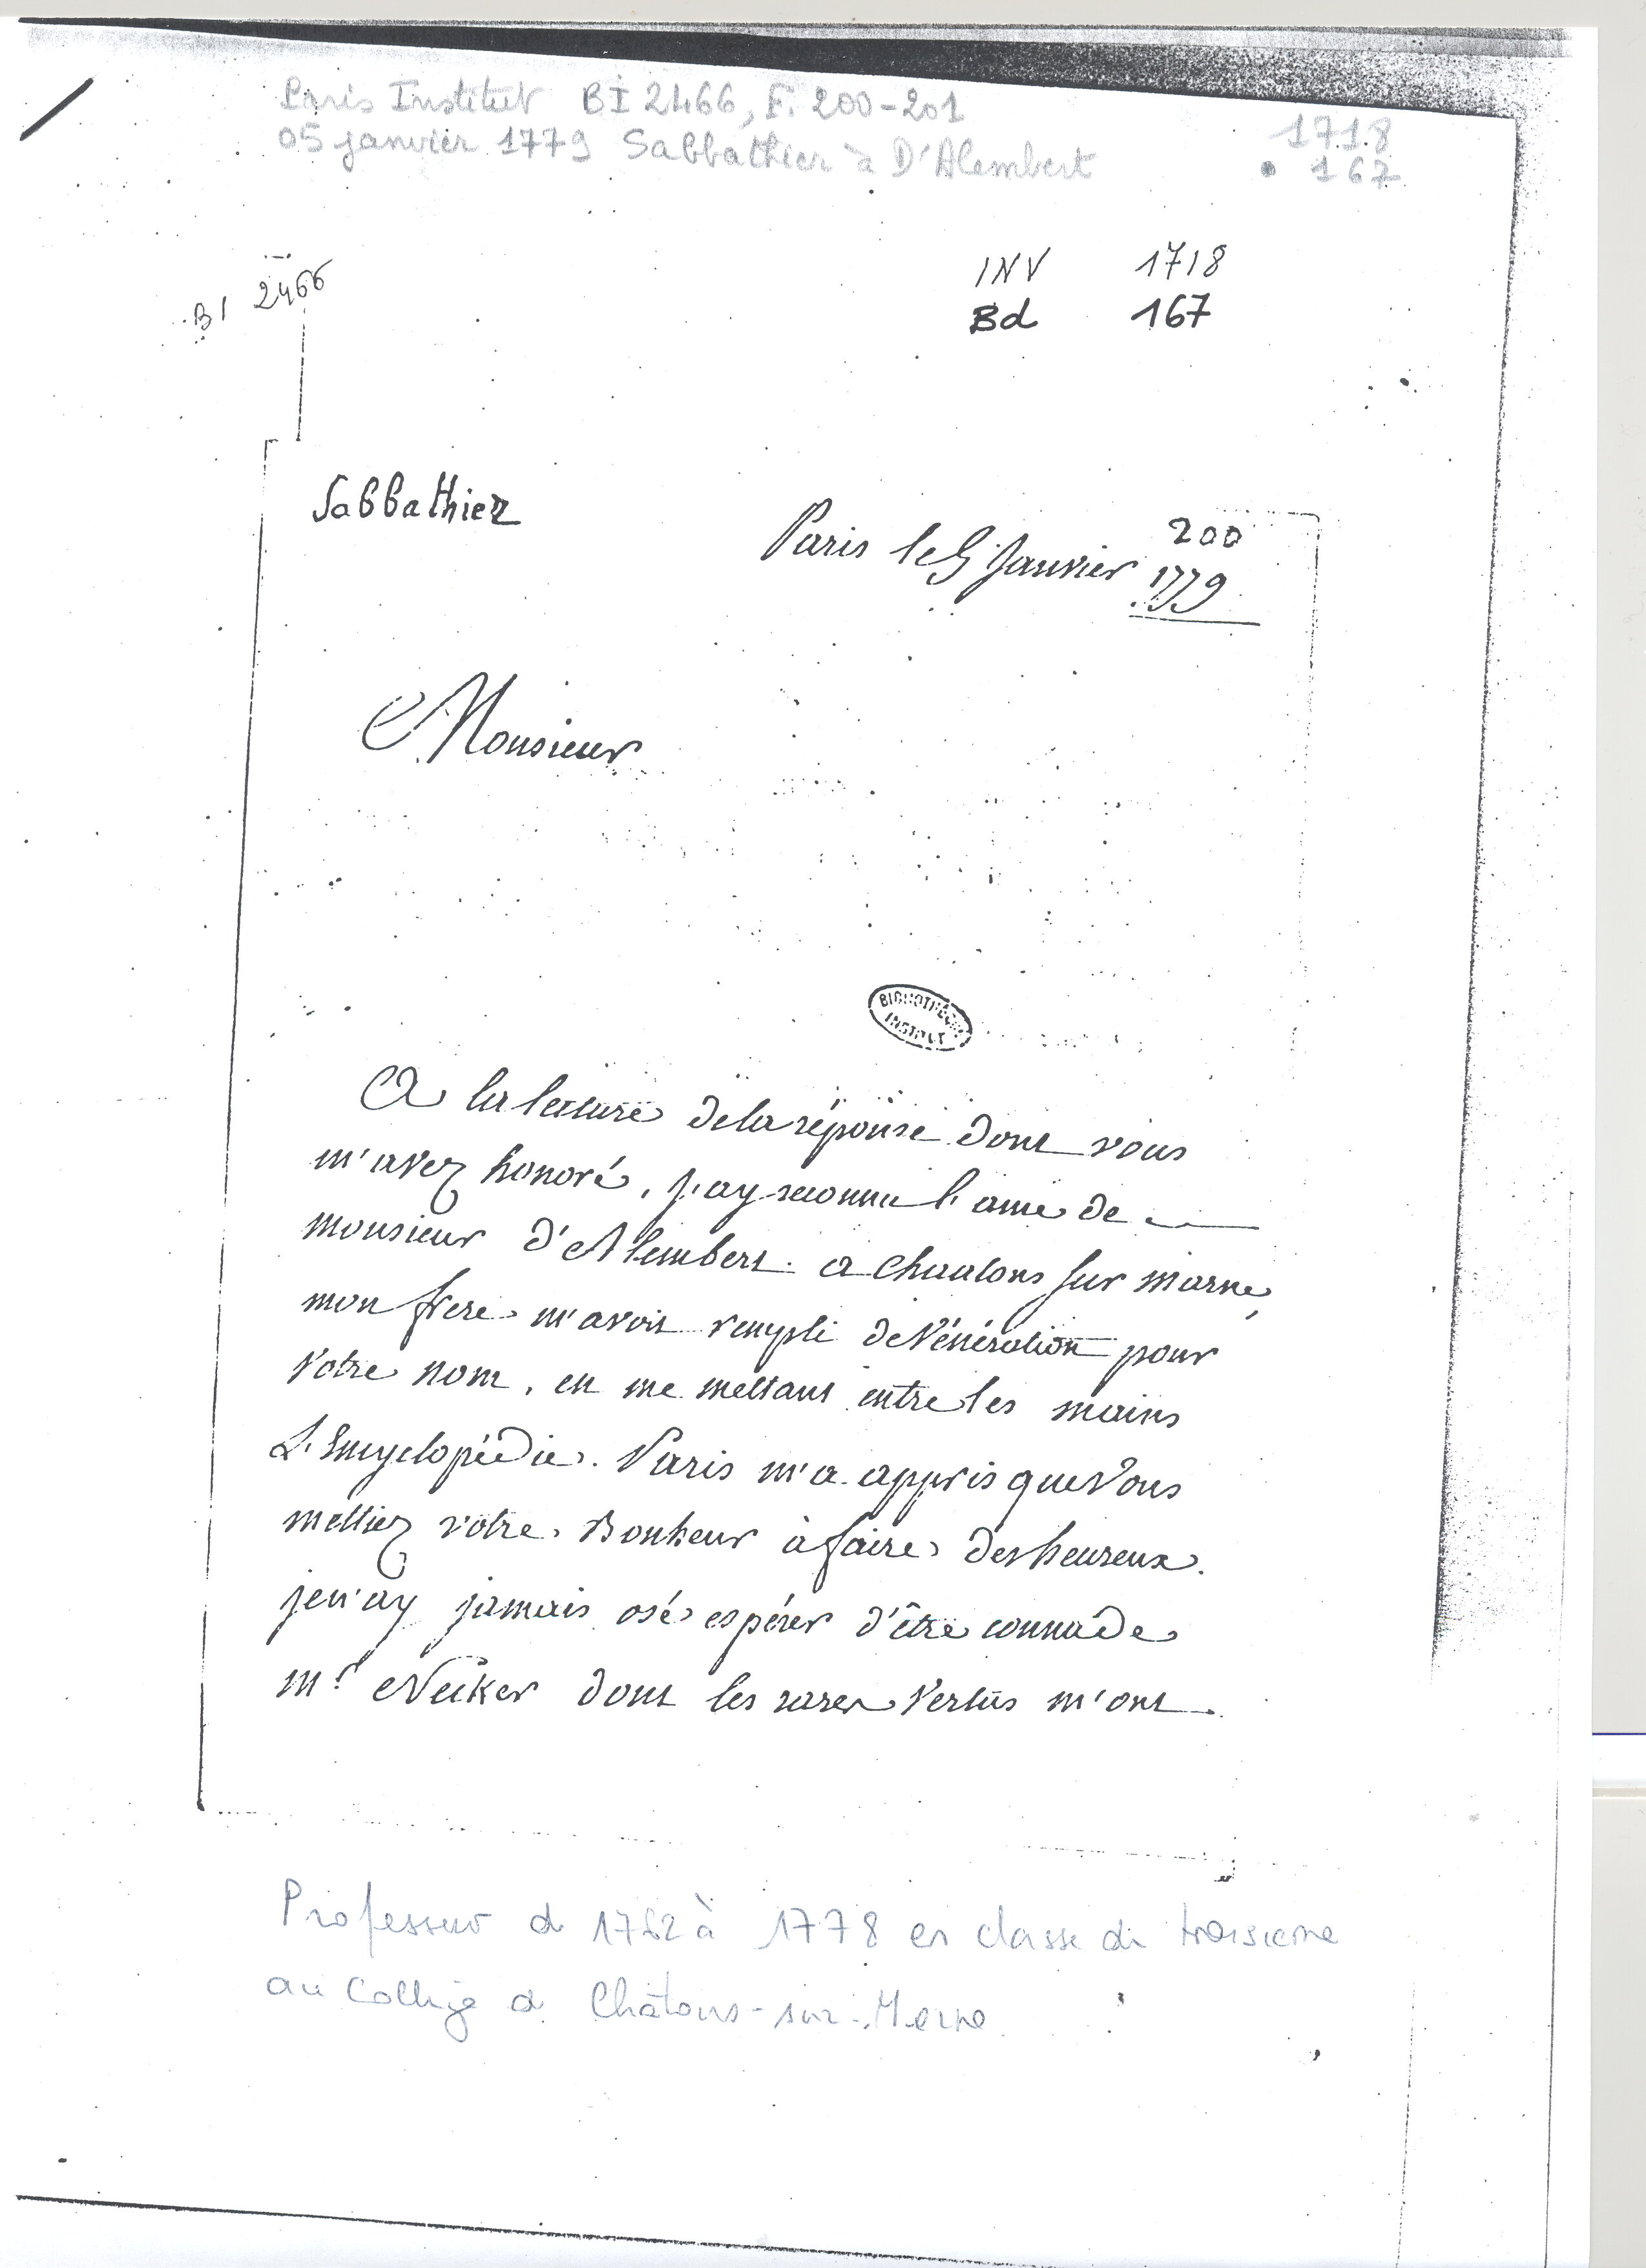 Paris Institut BI 2466, F. 200-201
05 janvier 1779 Sabbathier à D'Alembert
1718
167
BI 2466
INV 1718
Bd 167
Sabbathier
200
Paris le 5 Janvier 1779
Monsieur
BIBLIOTHÈQUE
INSTITUT
A la lecture de la réponse dont vous
m'avez honoré, j'ay reconnu l'ame de
monsieur d'Alembert. a chaalons sur marne,
mon frere m'avoit rempli de Vénération pour
Votre nom, en me mettant entre les mains
L'Encyclopédie. Paris m'a appris que Vous
mettiez votre Bonheur à faire des heureux.
je n'ay jamais osé espérer d'être connu de
mr Necker dont les rares Vertus m'ont
Professeur de à 1778 en classe de troisieme
au College de Châlons-sur-Marne